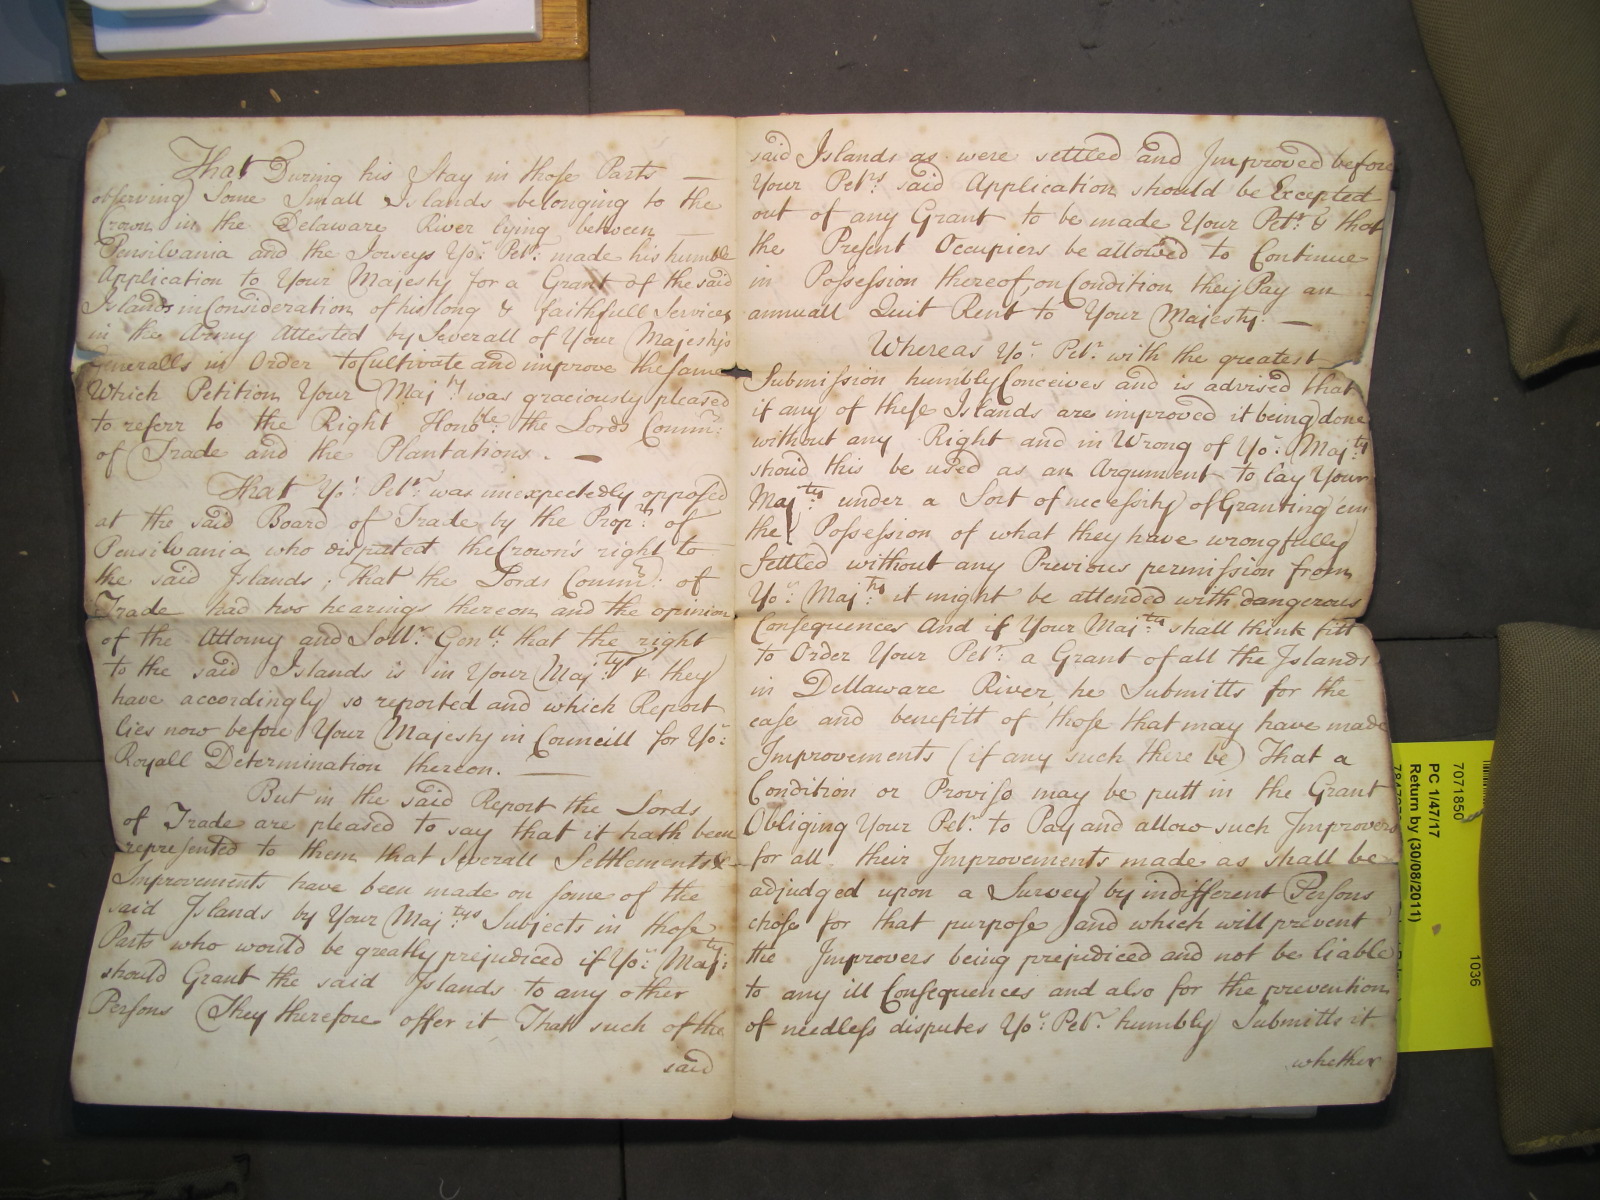 That During his Stay in those Parts —
observing Some Small Islands belonging to the
Crown in the Delaware River lying between —
Pensilvania and the Jerseys Yor: Petr: made his humble
Application to Your Majesty for a Grant of the said
Islands in Consideration of his long & faithfull Services
in the Army Attested by Severall of Your Majesty's
Generalls in Order to Cultivate and improve the same
Which Petition Your Majty: was graciously pleased
to referr to the Right Honoble: the Lords Commrs:
of Trade and the Plantations. —
That Yor: Petr: was unexpectedly opposed
at the said Board of Trade by the Proprs: of
Pensilvania who disputed the Crown's right to
the said Islands; That the Lords Commrs: of
Trade had two hearings thereon and the opinion
of the Attorny and Sollr: Genll: that the right
to the said Islands is in Your Majty: & they
have accordingly so reported and which Report
lies now before Your Majesty in Councill for Yor:
Royall Determination thereon. —
But in the said Report the Lords
of Trade are pleased to say that it hath been
represented to them that Severall Settlements &
Improvements have been made on some of the
said Islands by Your Majtys: Subjects in those
Parts who would be greatly prejudiced if Yor: Majty:
should Grant the said Islands to any other
Persons They therefore offer it That such of the
said
said Islands as were settled and Improved before
Your Petrs: said Application should be Excepted
out of any Grant to be made Your Petr: & that
the Present Occupiers be allowed to Continue
in Possession thereof, on Condition they Pay an
annuall Quit Rent to Your Majesty. —
Whereas Yor: Petr: with the greatest
Submission humbly Conceives and is advised that
if any of these Islands are improved it being done
without any Right and in Wrong of Yor: Majty:
shoud this be used as an Argument to lay Your
Majty: under a Sort of necessity of Granting 'em
the Possession of what they have wrongfully
Settled without any Previous permission from
Yor: Majty: it might be attended with dangerous
Consequences And if Your Majty: shall think fitt
to Order Your Petr: a Grant of all the Islands
in Dellaware River, he Submitts for the
ease and benefitt of those that may have made
Improvements (if any such there be) That a
Condition or Proviso may be putt in the Grant
Obliging Your Petr: to Pay and allow such Improvers
for all their Improvements made as shall be
adjudged upon a Survey by indifferent Persons
chose for that purpose and which will prevent
the Improvers being prejudiced and not be liable
to any ill Consequences and also for the prevention
of needless disputes Yor: Petr: humbly Submitts it
whether
7071850
PC 1/47/17
Return by (30/08/2011)
1036